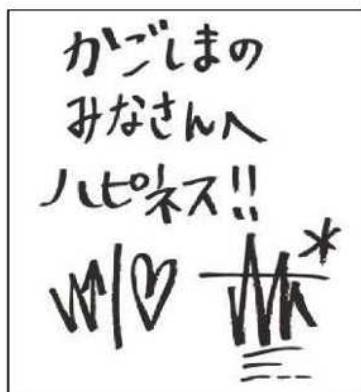 かごしまの
みなさんへ
ハピネス!!